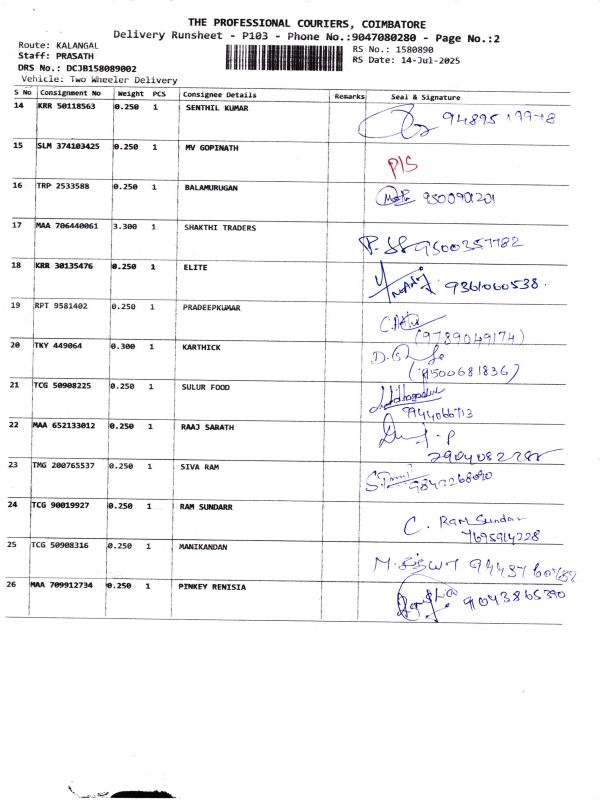 THE PROFESSIONAL COURIERS, COIMBATORE
Delivery Runsheet - P103 - Phone No.:9047080280 - Page No.:2
Route: KALANGAL
RS No.: 1580890
Staff: PRASATH
RS Date: 14-Jul-2025
DRS No.: DCJB158089002
Vehicle: Two Wheeler Delivery
S No Consignment No Weight PCS Consignee Details Remarks Seal & Signature
14 KRR 50118563 0.250 1 SENTHIL KUMAR
15 SLM 374103425 0.250 1 MV GOPINATH P/S
16 TRP 2533588 0.250 1 BALAMURUGAN 9500901201
17 MAA 706440061 3.300 1 SHAKTHI TRADERS 9500357782
18 KRR 30135476 0.250 1 ELITE 9361060538.
19 RPT 9581402 0.250 1 PRADEEPKUMAR
(9789049174)
20 TKY 449064 0.300 1 KARTHICK
(9500681836)
21 TCG 50908225 0.250 1 SULUR FOOD
9944066713
22 MAA 652133012 0.250 1 RAAJ SARATH
23 TMG 200765537 0.250 1 SIVA RAM
24 TCG 90019927 0.250 1 RAM SUNDARR C. Ram Sundar
7695914228
25 TCG 50908316 0.250 1 MANIKANDAN
26 MAA 709912734 0.250 1 PINKEY RENISIA 9043865390